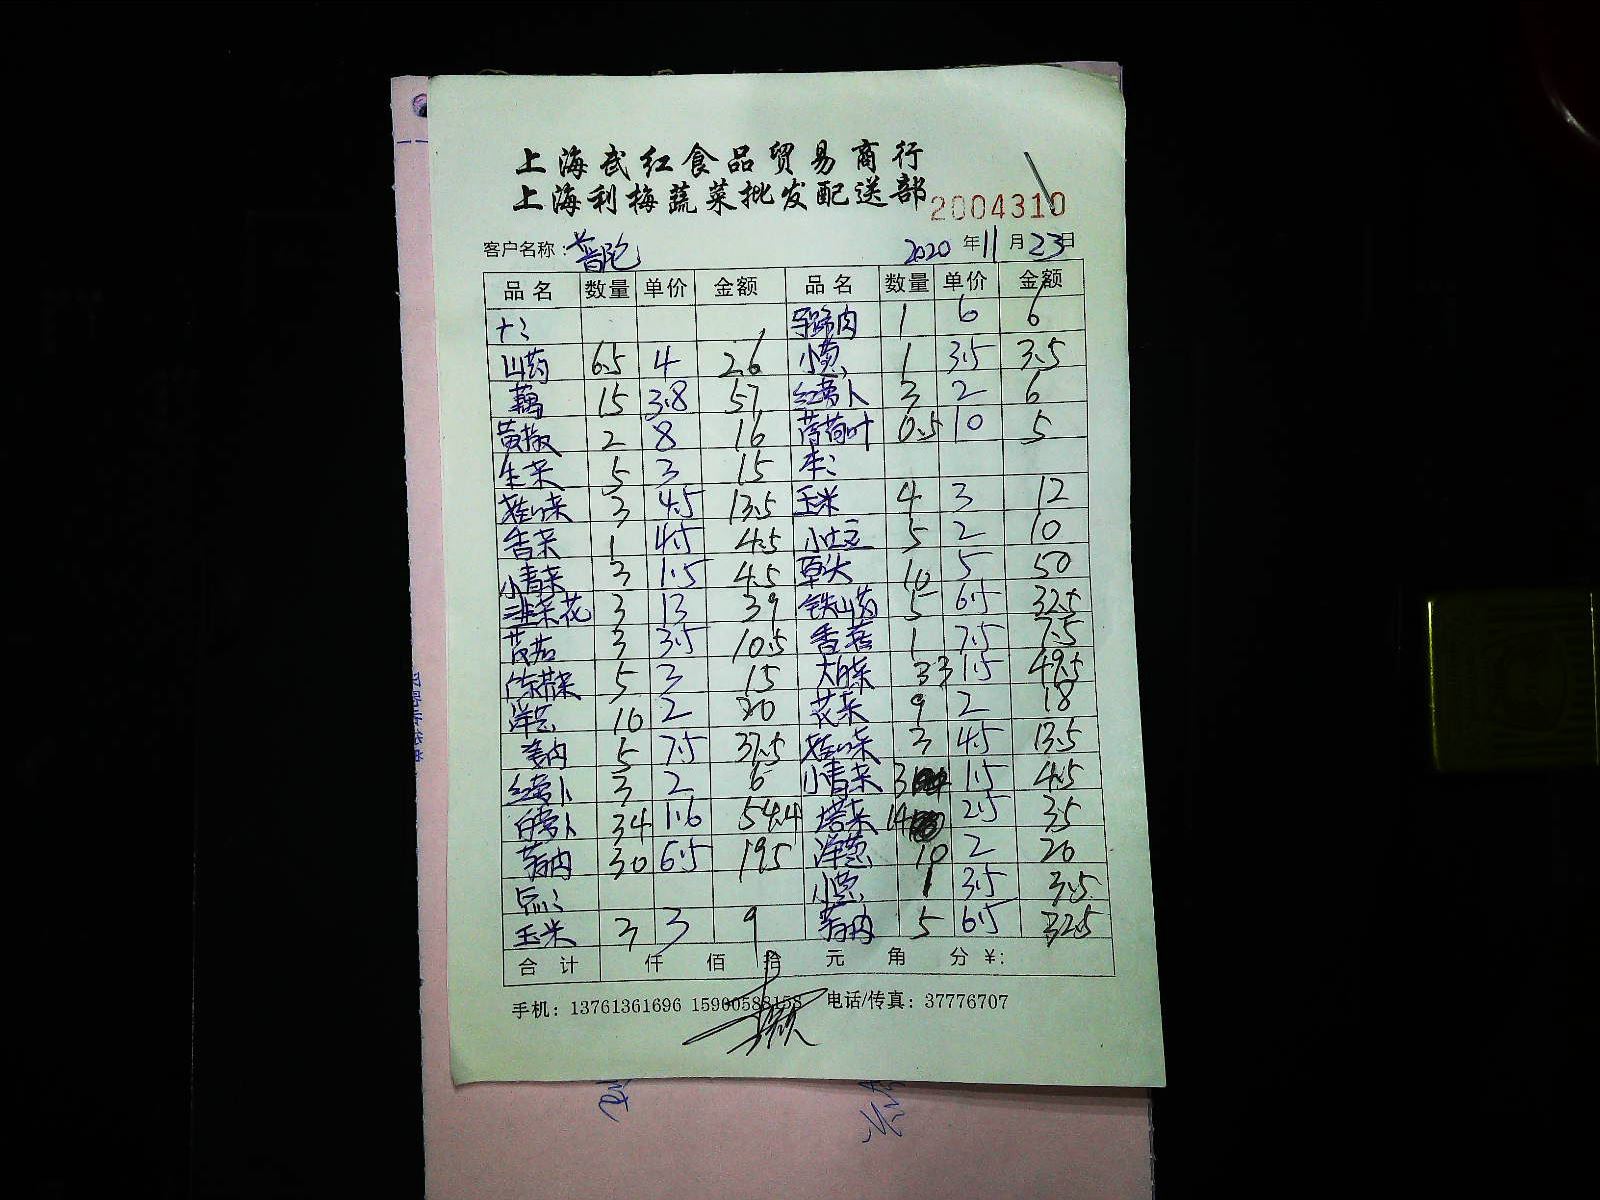 上海武红食品贸易商行
上海利梅蔬菜批发配送部 2004310
客户名称：普陀 2020 年 11 月 23 日
品名 数量 单价 金额 品名 数量 单价 金额
1 6 6
山药 6.5 4 26 小葱 1 3.5 3.5
藕 15 3.8 57 红萝卜 3 2 6
黄椒 2 8 16 薄荷叶 0.5 10 5
生菜 5 3 15
娃娃菜 3 4.5 13.5 玉米 4 3 12
香菜 1 4.5 4.5 小土豆 5 2 10
小青菜 3 1.5 4.5 草头 10 5 50
韭菜花 3 13 39 铁山药 5 6.5 32.5
茄 3 3.5 10.5 香菇 1 7.5 7.5
5 3 15 大白菜 33 1.5 49.5
洋葱 10 2 20 花菜 9 2 18
5 7.5 37.5 娃娃菜 3 4.5 13.5
红萝卜 3 2 6 小青菜 3 1.5 4.5
白萝卜 34 1.6 54.4 塔菜 14 2.5 35
30 6.5 195 洋葱 10 2 20
小葱 1 3.5 3.5
玉米 3 3 9 5 6.5 32.5
合计 仟 佰 拾 元 角 分 ¥:
手机：13761361696 15900588158 电话/传真：37776707